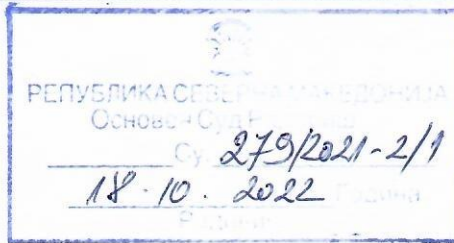 РЕПУБЛИКА СЕВЕРНА МАКЕДОНИЈА
Основен Суд
Су. 279/2021-2/1
18-10. 2022 Година